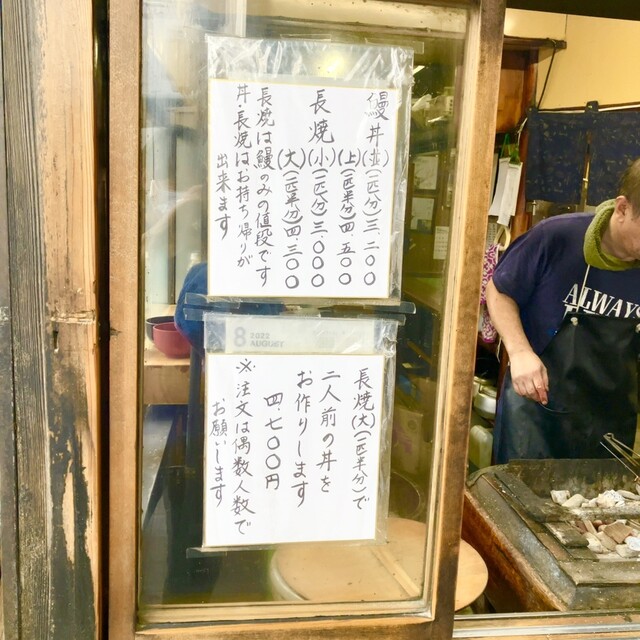 鰻丼(並)(一匹分)三、二〇〇
(上)(一匹半分)四、五〇〇
長焼(小)(一匹分)三、〇〇〇
(大)(一匹半分)四、三〇〇
長焼は鰻のみの値段です
丼・長焼はお持ち帰りが
出来ます
8 2022
AUGUST
長焼(大)(一匹半分)で
二人前の丼を
お作りします
四、七〇〇円
※注文は偶数人数で
お願いします
ALWAYS